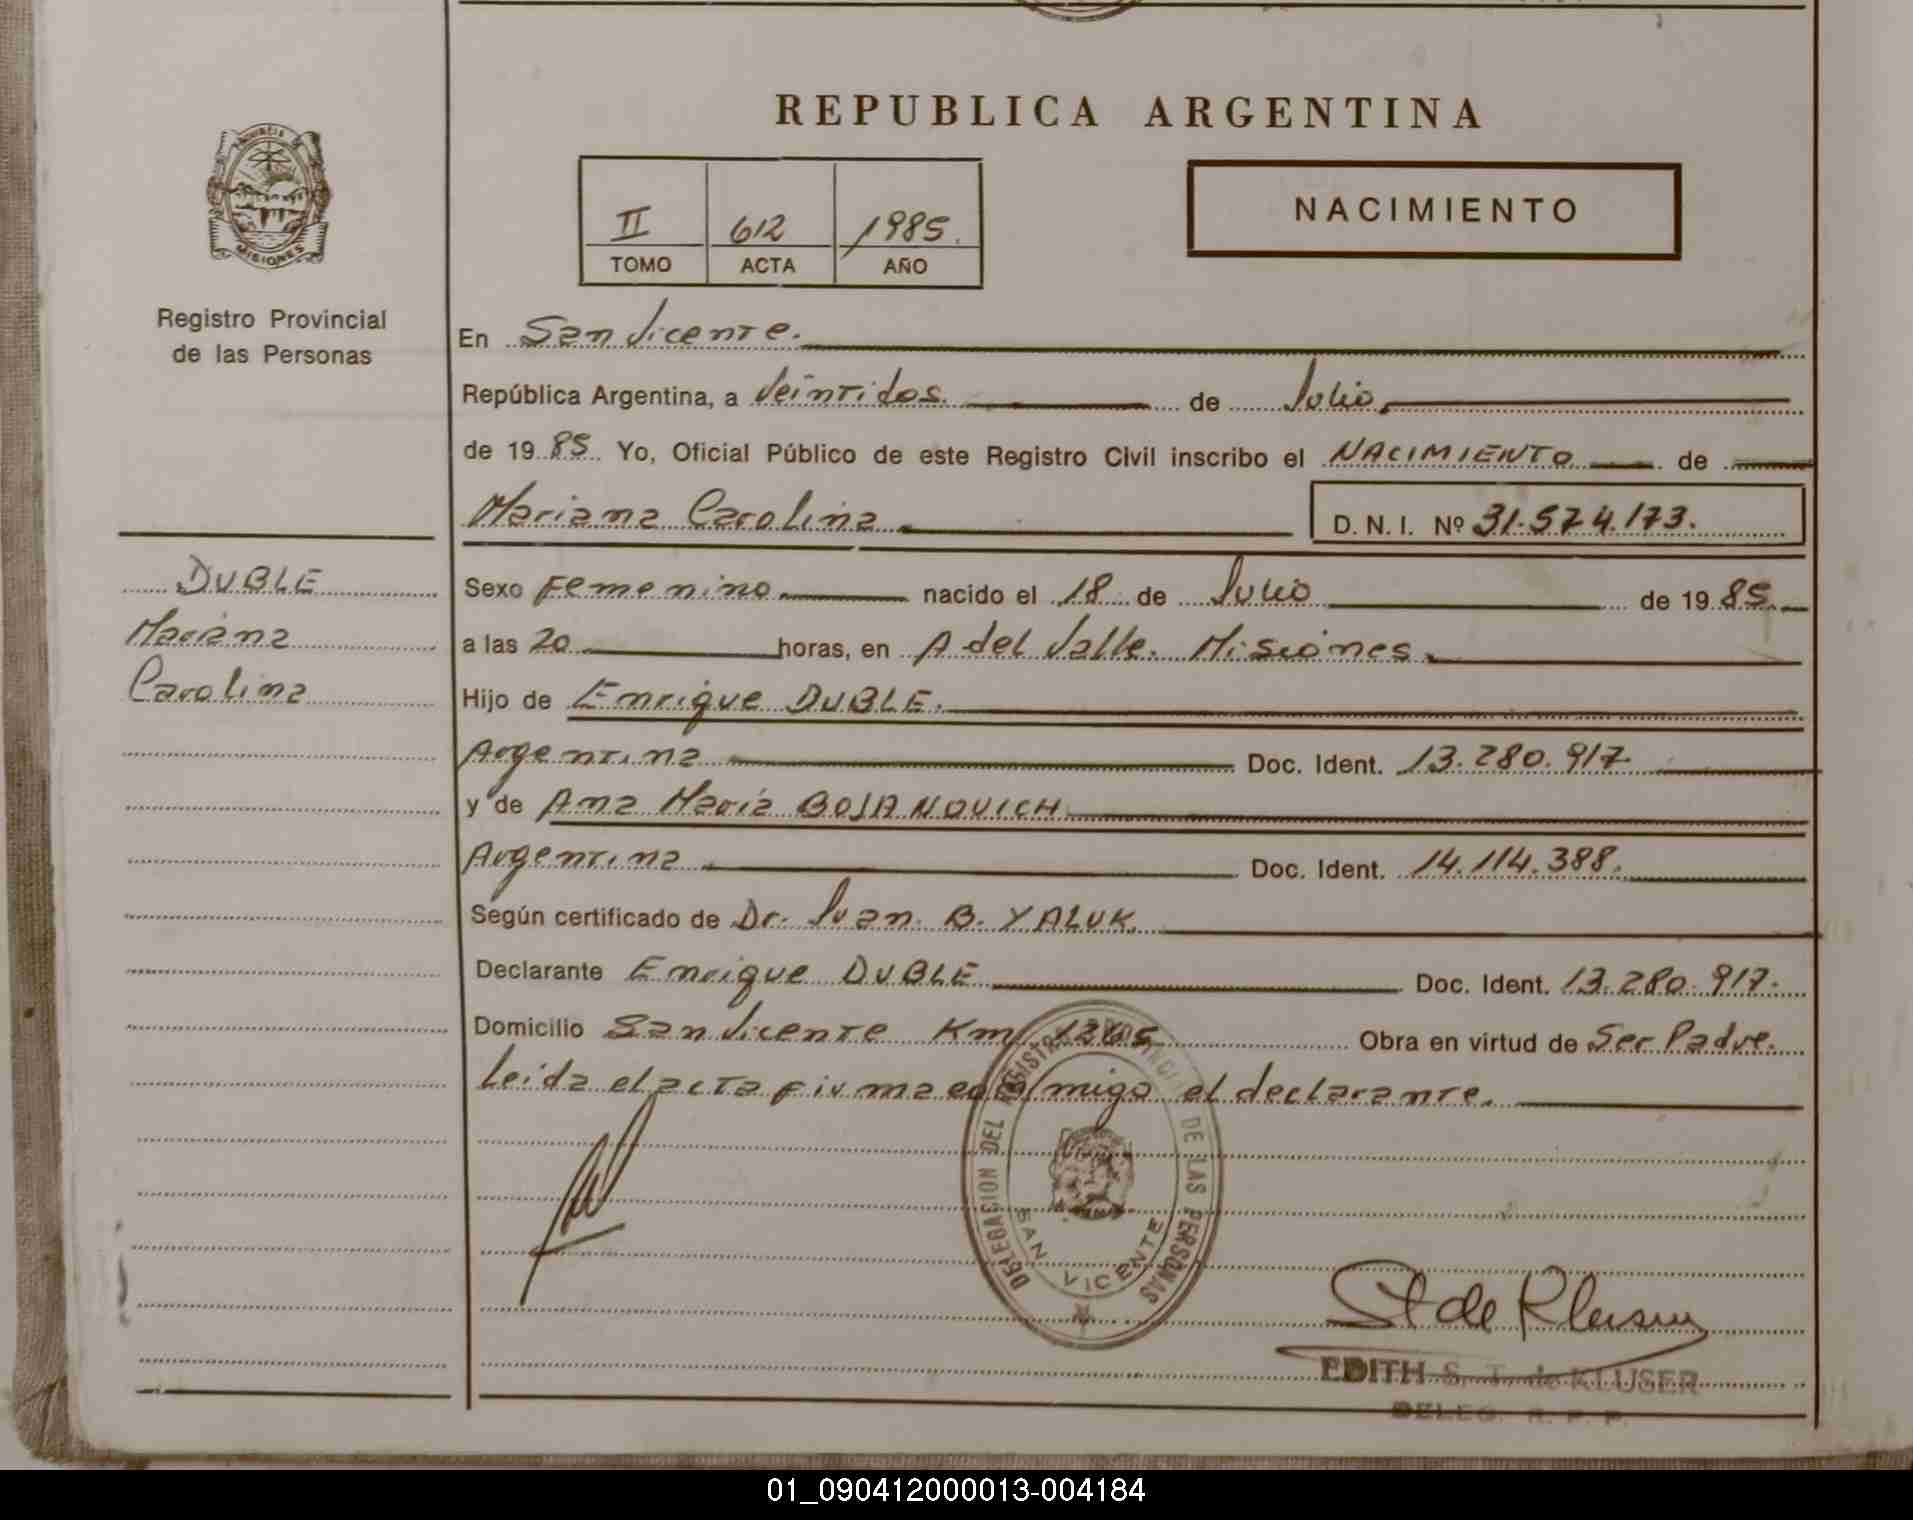 REPUBLICA ARGENTINA
PROVINCIA
MISIONES
Registro Provincial
de las Personas
II 612 1985.
TOMO ACTA AÑO
NACIMIENTO
En San Vicente.
República Argentina, a Veintidos. de Julio.
de 19 85 Yo, Oficial Público de este Registro Civil inscribo el NACIMIENTO de
Mariana Carolina
D. N. I. Nº 31.574.173.
DUBLE
Mariana
Carolina
Sexo Femenino nacido el 18 de Julio de 19 85.
a las 20 horas, en A del Valle. Misiones.
Hijo de Enrique DUBLE.
Argentina Doc. Ident. 13.280.917
y de Ana María BOJANOVICH
Argentina Doc. Ident. 14.114.388.
Según certificado de Dr. Juan B. YALUK.
Declarante Enrique DUBLE Doc. Ident. 13.280.917.
Domicilio San Vicente Km 1265 Obra en virtud de Ser Padre.
Leída el acta firma conmigo el declarante.
DELEGACION DEL REGISTRO PROVINCIAL DE LAS PERSONAS
SAN VICENTE
St de Kluser
EDITH S. T. de KLUSER
DELEG. R. P. P.
01_090412000013-004184